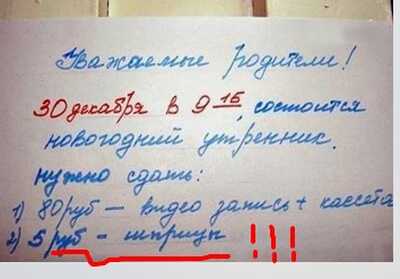 Уважаемые родители!
30 декабря в 9 15 состоится
новогодний утренник.
нужно сдать:
1) 80 руб — видео запись + кассета
2) 5 руб - шприцы !!!